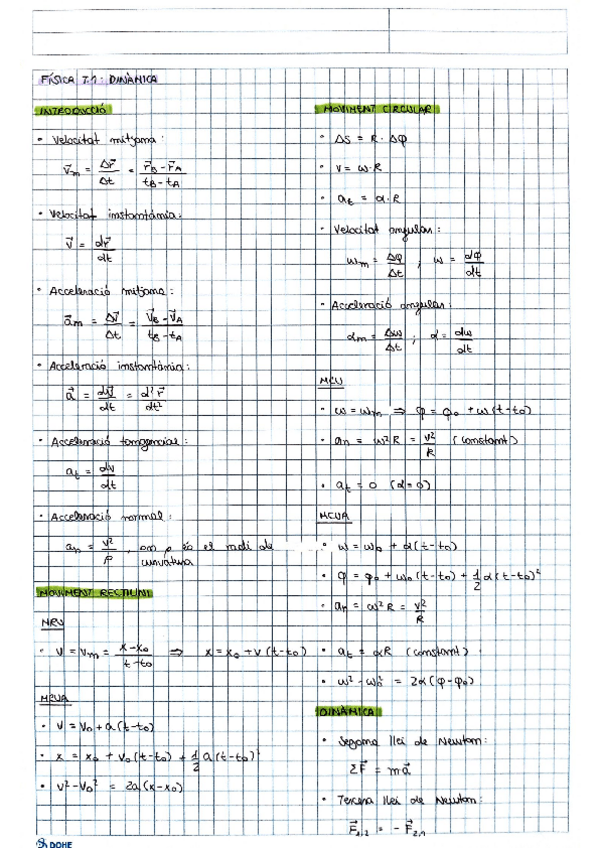 FÍSICA 7.1: DINÀMICA
INTRODUCCIÓ
• Velocitat mitjana:
v⃗m = Δr⃗/Δt = (r⃗B - r⃗A)/(tB - tA)
• Velocitat instantània:
v⃗ = dr⃗/dt
• Acceleració mitjana:
a⃗m = Δv⃗/Δt = (v⃗B - v⃗A)/(tB - tA)
• Acceleració instantània:
a⃗ = dv⃗/dt = d²r⃗/dt²
• Acceleració tangencial:
at = dv/dt
• Acceleració normal:
an = v²/ρ, on ρ és el radi de
curvatura
MOVIMENT RECTILINI
MRU
• v = vm = (x - x0)/(t - t0) ⇒ x = x0 + v(t - t0)
MRUA
• v = v0 + a(t - t0)
• x = x0 + v0(t - t0) + 1/2 a(t - t0)²
• v² - v0² = 2a(x - x0)
MOVIMENT CIRCULAR
• ΔS = R · Δφ
• v = ω · R
• at = α · R
• Velocitat angular:
ωm = Δφ/Δt ; ω = dφ/dt
• Acceleració angular:
αm = Δω/Δt ; α = dω/dt
MCU
• ω = ωm ⇒ φ = φ0 + ω(t - t0)
• an = ω²R = v²/R (constant)
• at = 0 (α = 0)
MCUA
• ω = ω0 + α(t - t0)
• φ = φ0 + ω0(t - t0) + 1/2 α(t - t0)²
• an = ω²R = v²/R
• at = αR (constant)
• ω² - ω0² = 2α(φ - φ0)
DINÀMICA
• Segona llei de Newton:
ΣF⃗ = ma⃗
• Tercera llei de Newton:
F⃗1,2 = - F⃗2,1
DOHE